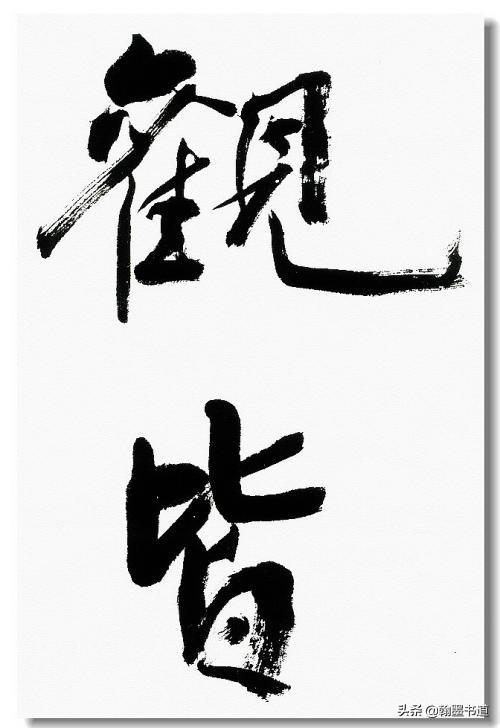 觀
皆
头条 @翰墨书道